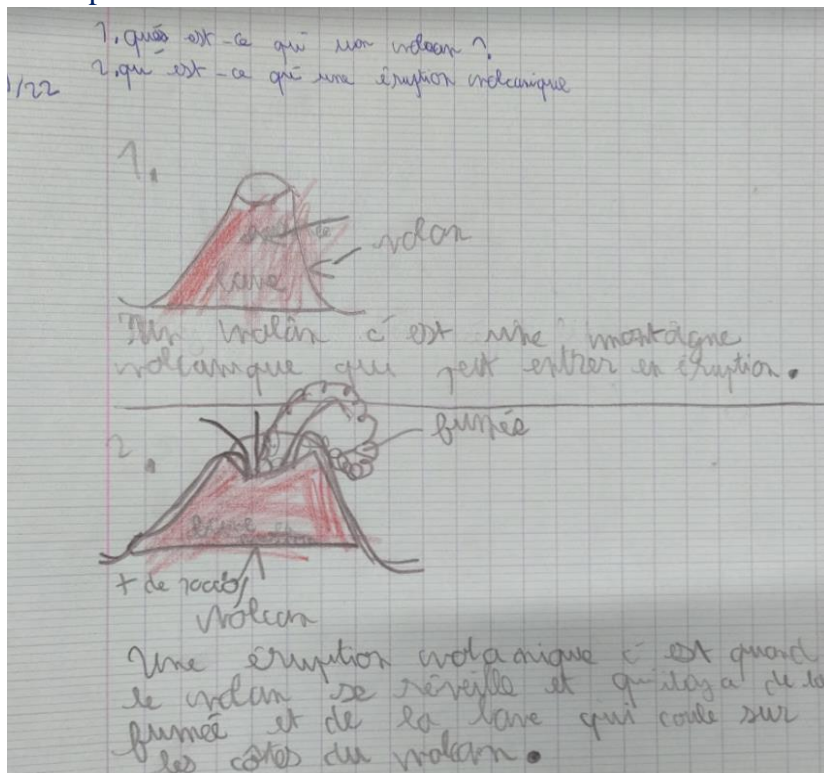 1. qués est-ce qui un volcan ?
2. qu'est-ce qui une éruption volcanique
/22
1.
volcan
lave
Un volcân c'est une montagne
volcanique qui peut entrer en éruption.
2.
fumée
+ de
volcan
Une éruption volcanique c'est quand
le volcan se réveille et qu'il y a de la
fumée et de la lave qui coule sur
les côtes du volcan.